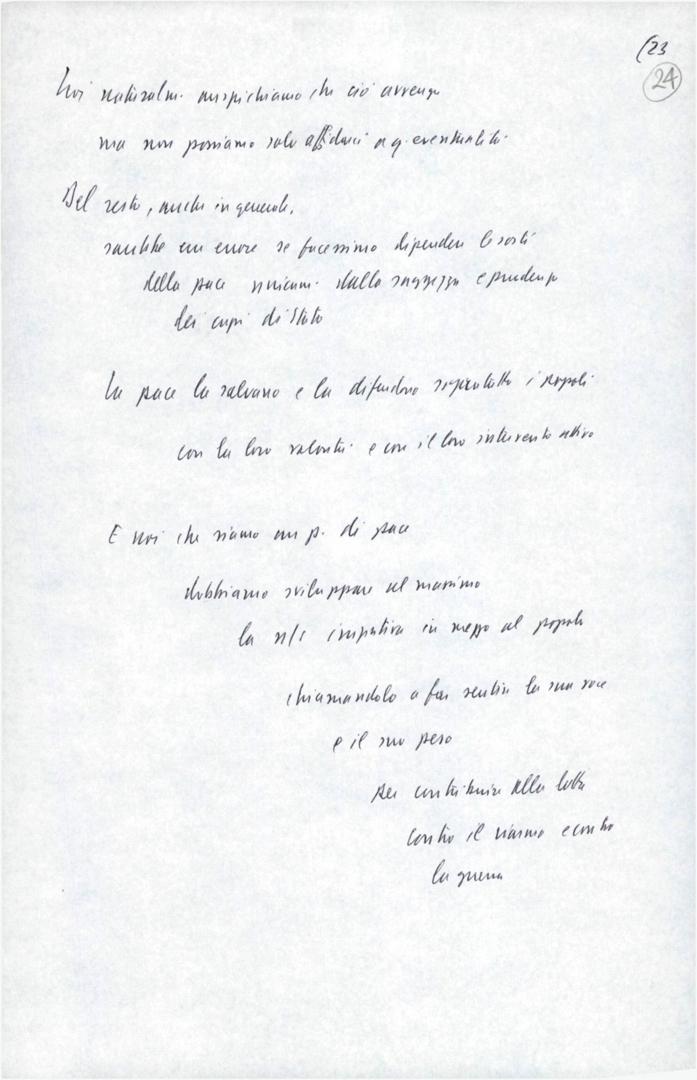 (23
24
Noi naturalm. auspichiamo che ciò avvenga
ma non possiamo solo affidarci a q. eventualità.
Del resto, anche in generale,
sarebbe un errore se facessimo dipendere le sorti
della pace unicam. dalla saggezza e prudenza
dei capi di Stato
La pace la salvano e la difendono soprattutto i popoli
con la loro volontà e con il loro intervento attivo
E noi che siamo un p. di pace
dobbiamo sviluppare al massimo
la n/s iniziativa in mezzo al popolo
chiamandolo a far sentire la sua voce
e il suo peso
per contribuire alla lotta
contro il riarmo e contro
la guerra